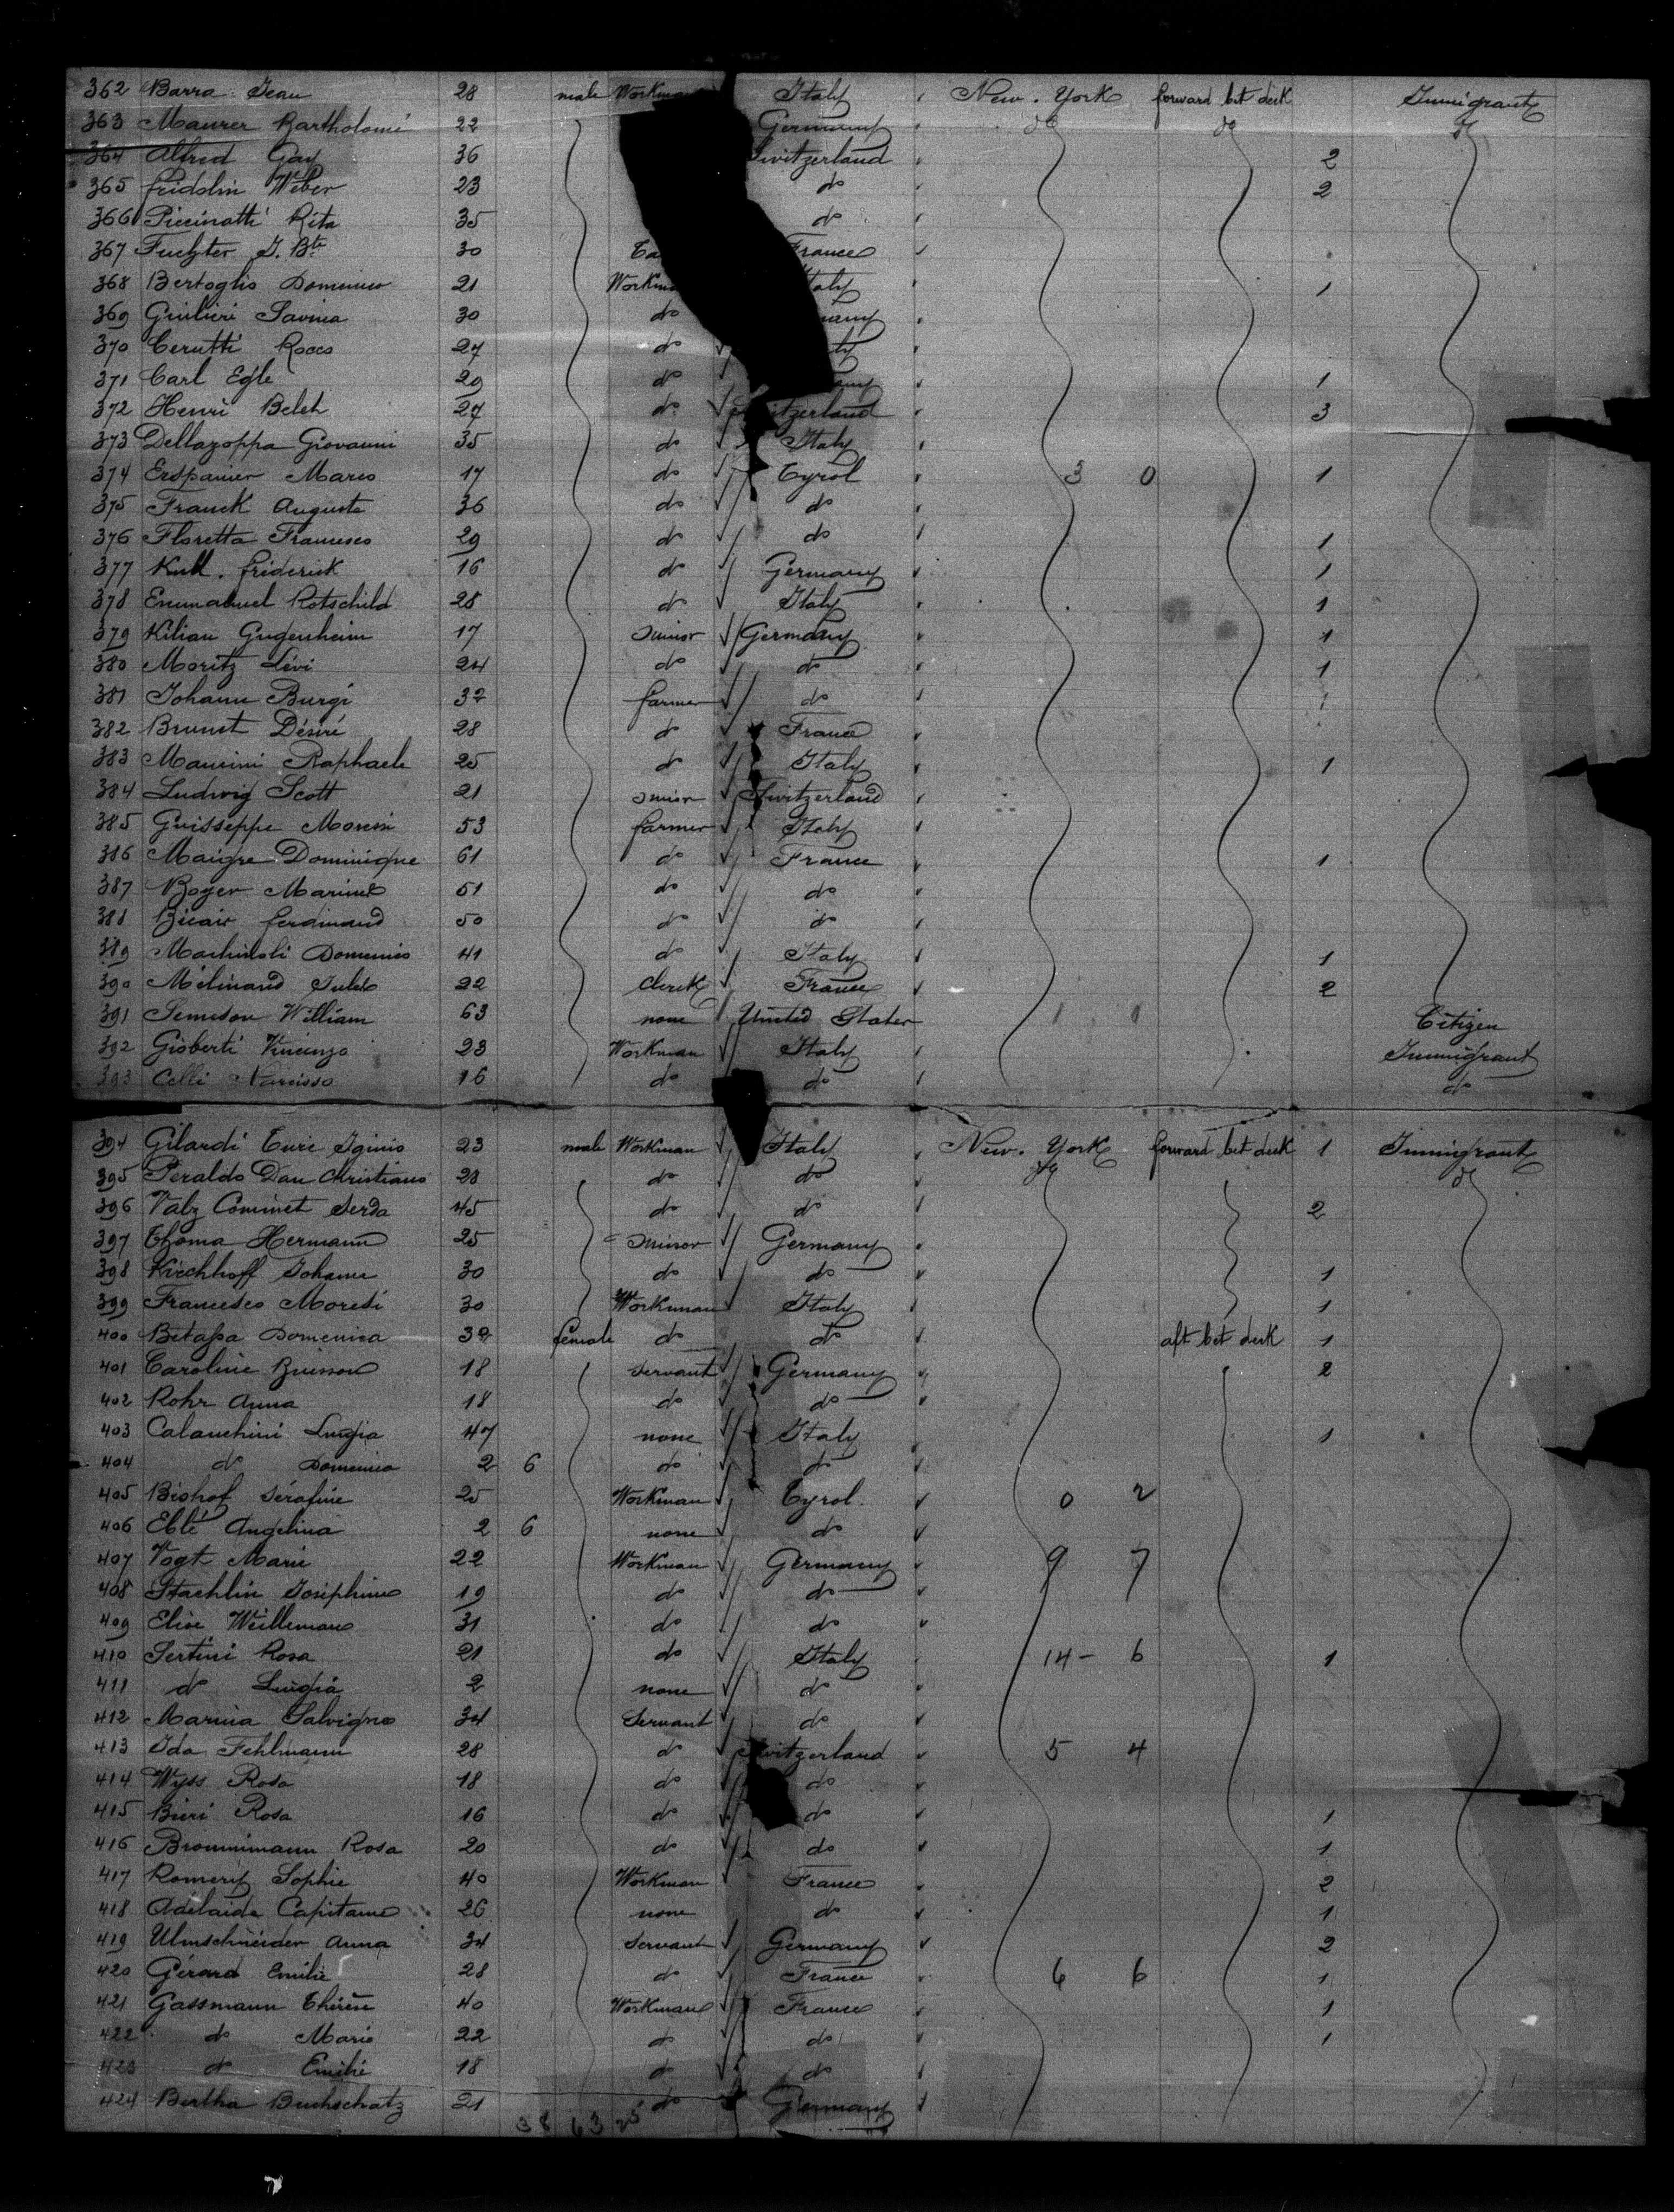 362 Barra Jean 28 male Workman Italy New. York forward bet deck Immigrant
363 Maurer Bartholomé 22 Germany do do do
364 Alfred Gay 36 Switzerland 2
365 fridolin Weber 23 do 2
366 Piccinatti Rita 35 do
367 J. Bte 30 France
368 Bertoglio Domenico 21 Workman Italy 1
369 Giulieri Savina 30 do
370 Cerutti Rocco 27 do
371 Carl Egle 29 do 1
372 Henri 27 do Switzerland 3
373 Dellazoppa Giovanni 35 do Italy
374 Erspamer Marco 17 do Tyrol 3 0 1
375 Franck Auguste 36 do do
376 Floretta Francesco 29 do do 1
377 Kull. friderick 16 do Germany 1
378 Emmanuel Rotschild 28 do Italy 1
379 Kilian Gugenheim 17 Germany 1
380 Moritz Lévi 24 do do 1
381 Johann Burgi 32 farmer do 1
382 Brunet Désiré 28 do France
383 Mausini Raphaele 25 do Italy 1
384 Ludwig Scott 21 Switzerland
385 Guisseppe Moresi 53 farmer Italy
386 Maigre Dominique 61 do France 1
387 Boyer Marius 51 do do
388 ferdinand 50 do do
389 Domenico 41 do Italy 1
390 Mélinand Jules 22 clerk France 2
391 William 63 none United States 1 1 Citizen
392 Gioberti Vincenzo 23 Workman Italy Immigrant
393 Celli Narcisso 16 do do do
394 Gilardi Iginio 23 male Workman Italy New. York forward bet deck 1 Immigrant
395 Peraldo Dan Christiano 28 do do do do
396 Valz Cominet Serda 45 do do 2
397 Thoma Hermann 25 Germany
398 Kirchhoff Johann 30 do do 1
399 Francesco Moresi 30 Workman Italy 1
400 Betassa Domenica 32 female do do aft bet deck 1
401 Caroline Buisson 18 servant Germany 2
402 Rohr Anna 18 do do
403 Calanchini Luigia 47 none Italy 1
404 do Domenico 2 6 do do
405 Bishof Sérafine 25 Workman Tyrol. 0 2
406 Eblé Angelina 2 6 none do
407 Vogt Marie 22 Workman Germany 9 7
408 Staehlin Joséphine 19 do do
409 Elise Weillemann 31 do do
410 Sertini Rosa 21 do Italy 14 - 6 1
411 do Luigia 2 none do
412 Marina Salvigno 34 Servant do
413 Ida Fehlmann 28 do Switzerland 5 4
414 Wyss Rosa 18 do do
415 Bieri Rosa 16 do do 1
416 Bronnimann Rosa 20 do do 1
417 Romery Sophie 40 Workman France 2
418 Adelaide Capitaine 26 none do 1
419 Ulmschneider Anna 34 Servant Germany 2
420 Gérard Emilie 28 do France 6 6 1
421 Gassmann Thérèse 40 Workman France 1
422 do Marie 22 do do 1
423 do Emilie 18 do do
424 Bertha Buchschatz 21 do Germany
38 63 25